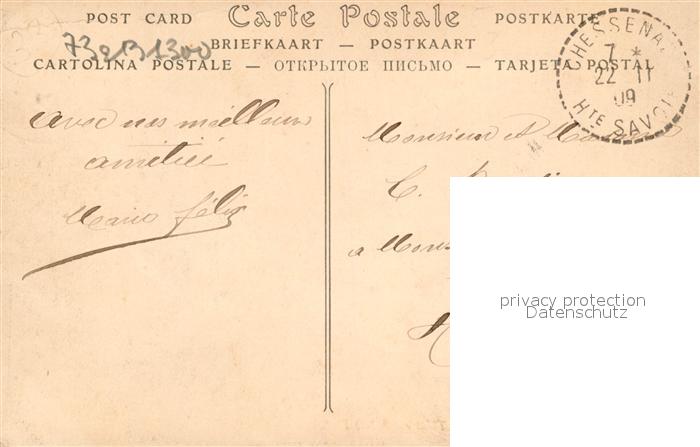 POST CARD Carte Postale POSTKARTE
73eB1300
BRIEFKAART — POSTKAART
CARTOLINA POSTALE — ОТКРЫТОЕ ПИСЬМО — TARJETA POSTAL
CHESSENA
7 *
22 11
09
Hte SAVOIE
Avec nos meilleurs
amitiés
Marie félix
Monsieur et
C.
a
privacy protection
Datenschutz